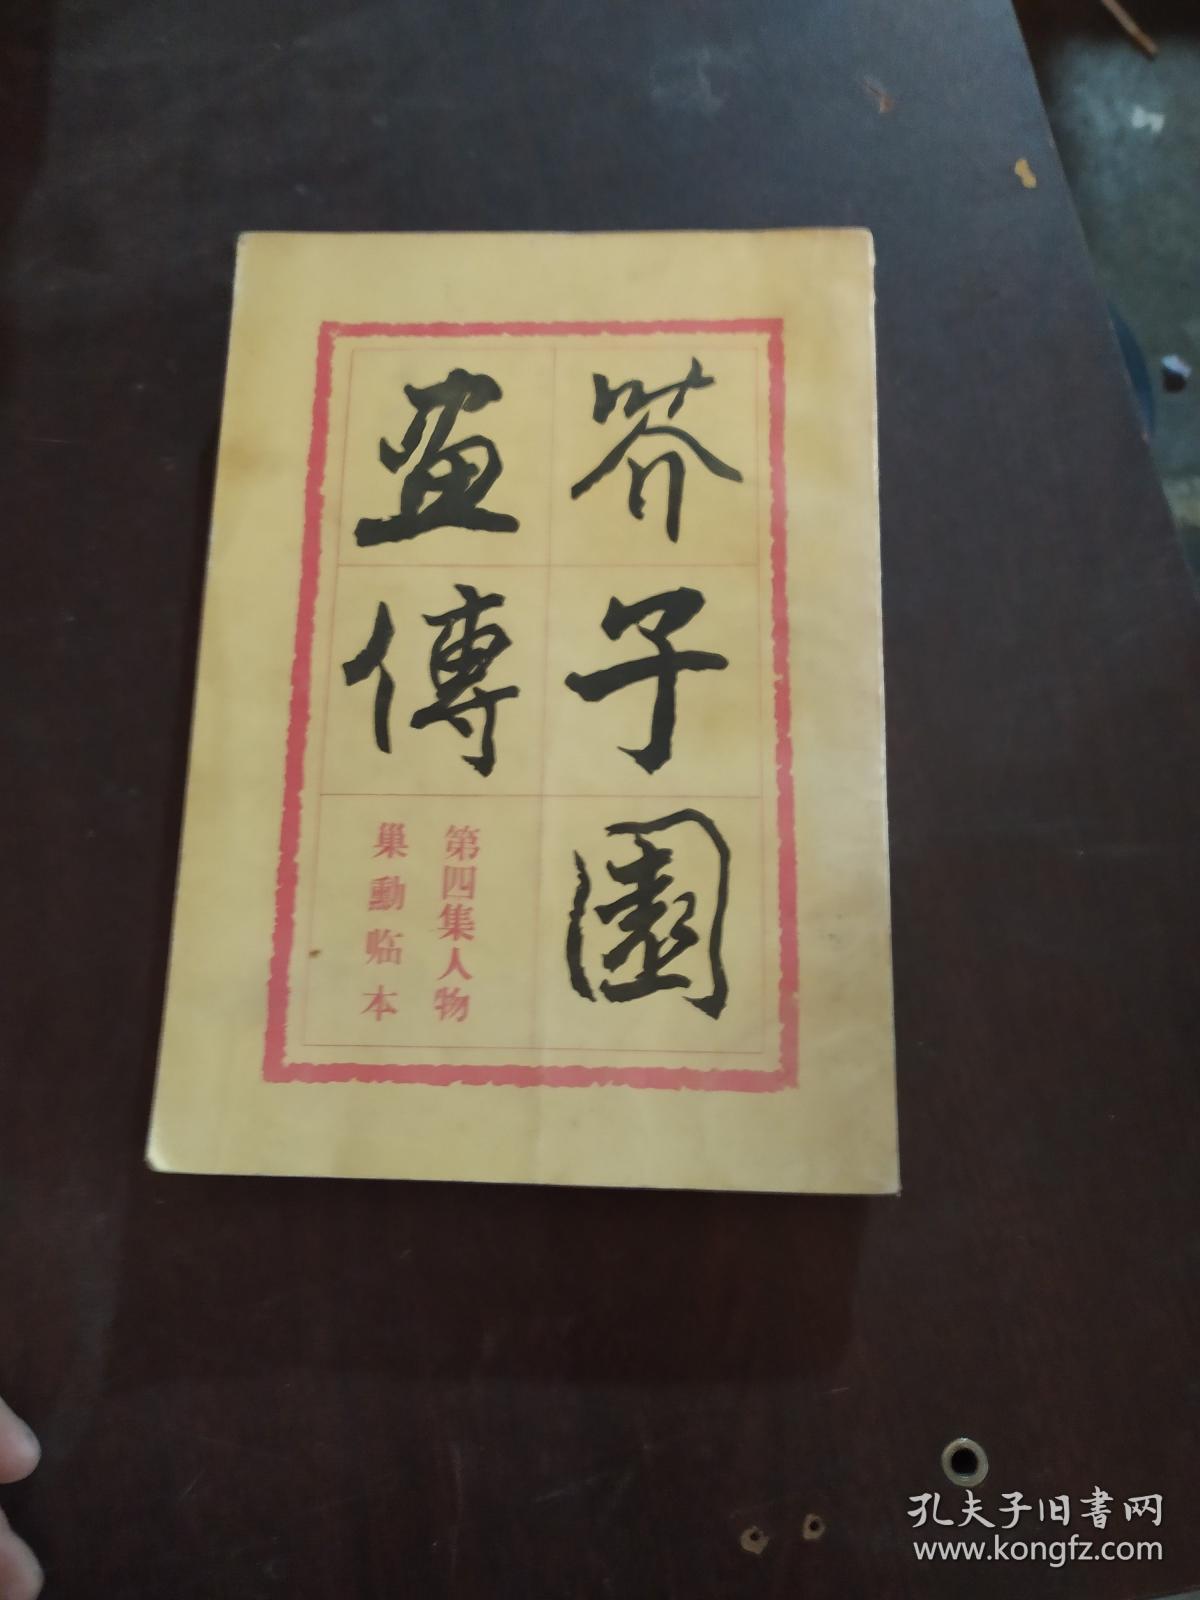 芥子園
畫傳
第四集人物
巢勳临本
孔夫子旧書网
www.kongfz.com